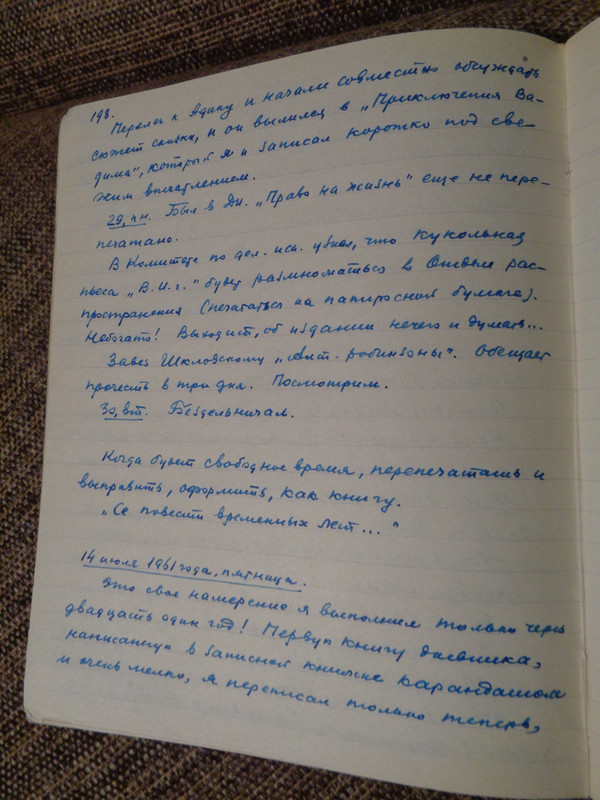 198.
Перелег к Адику и начали совместно обсуждать
сюжет сказки, и он вылился в „Приключения Ва-
дима", который я и записал коротко под све-
жим впечатлением.
29, пн. Был в Ди. „Право на жизнь" еще не пере-
печатано.
В Комитете по дел. иск. узнал, что кукольная
пьеса „В.И.г." будет размножаться в Отделе рас-
пространения (печататься на папиросной бумаге).
Небогато! Выходит, об издании нечего и думать...
Завез Шкловскому „Аит. робинзоны". Обещает
прочесть в три дня. Посмотрим.
30, вт. Бездельничал.
Когда будет свободное время, перепечатать и
выправить, оформить, как книгу.
„Се повести временных лет..."
14 июля 1961 года, пятница.
Это свое намерение я выполнил только через
двадцать один год! Первую книгу дневника,
написанную в записной книжке карандашом
и очень мелко, я переписал только теперь,